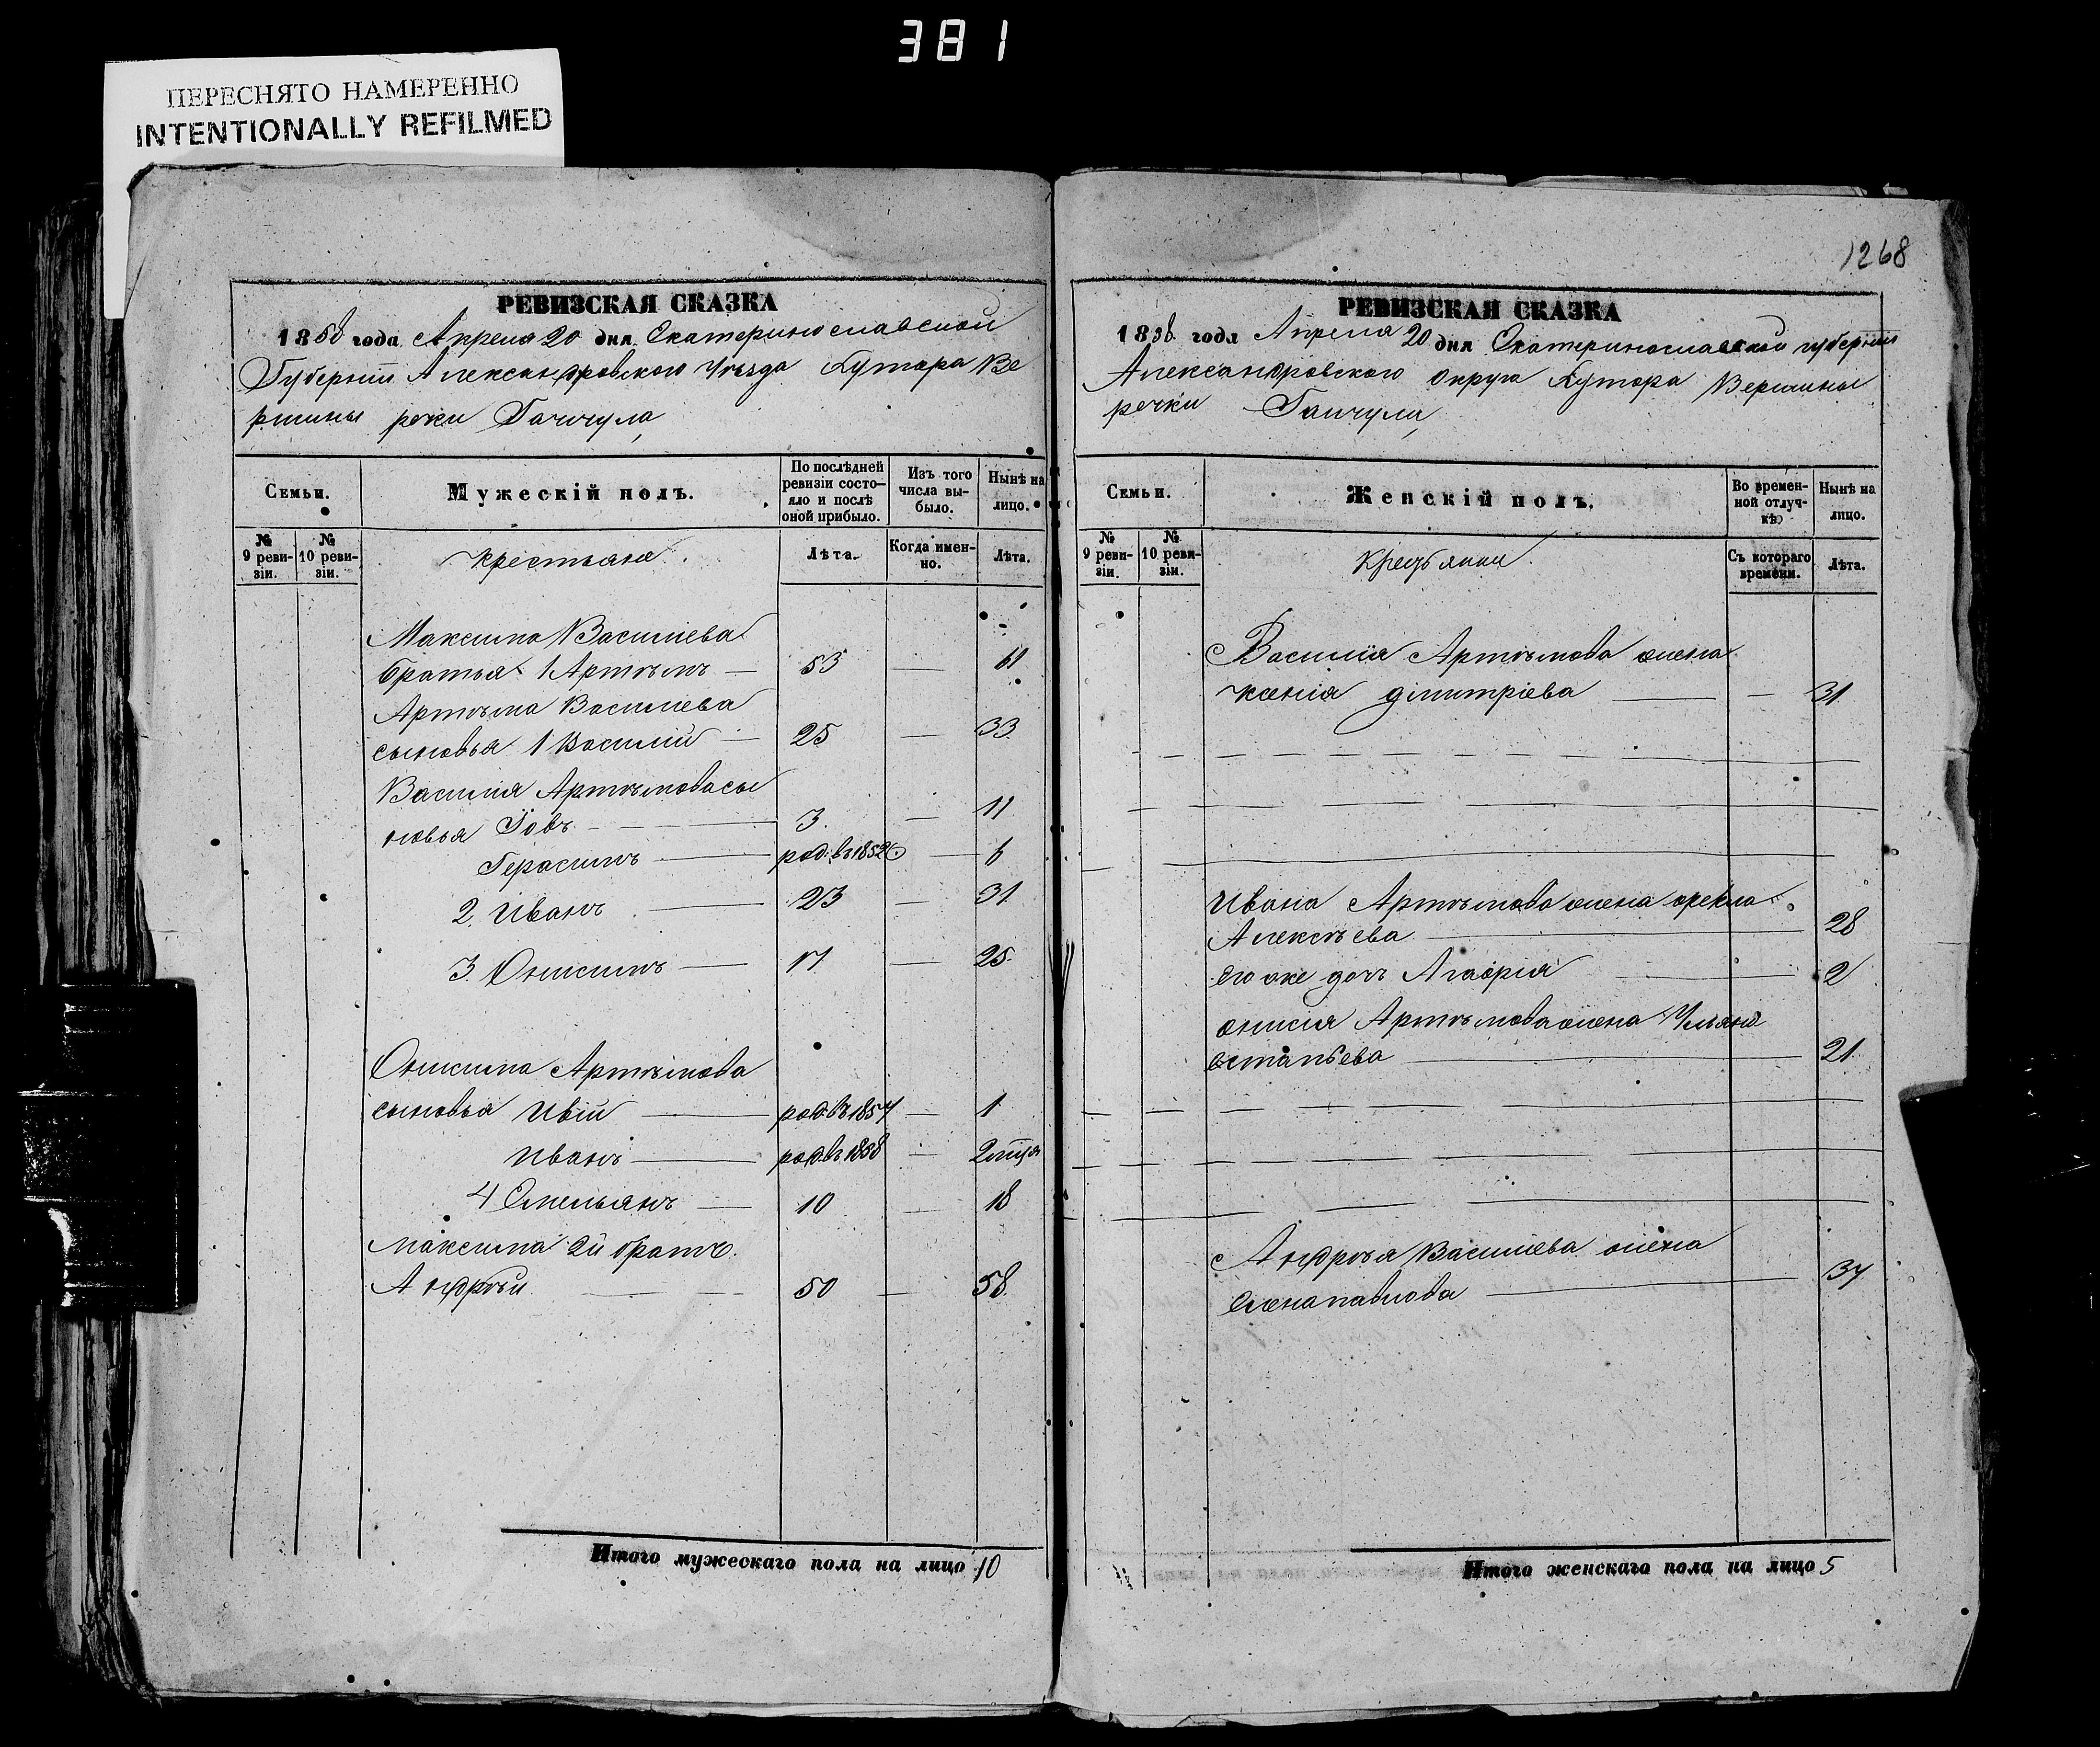 381
ПЕРЕСНЯТО НАМЕРЕННО
INTENTIONALLY REFILMED
РЕВИЗСКАЯ СКАЗКА
1858 года Апреля 20 дня Екатеринославской
Губернiи Александровского Уѣзда Хутора Ве
ршины речки Гайчула
Семьи.
Мужескiй полъ.
По послѣдней ревизiи состояло и послѣ оной прибыло.
Изъ того числа выбыло.
Нынѣ на лицо.
№ 9 ревизiи.
№ 10 ревизiи.
крестьяне
Лѣта.
Когда именно.
Лѣта.
Максима Василiева
братья 1 Артѣмъ — 53 — 61
Артѣма Василiева
сыновья 1 Василiй — 25 — 33
Василiя Артѣмова сы
новья Iовъ — 3 — 11
Герасимъ — род. въ 1852 — 6
2. Иванъ — 23 — 31
3. Онисимъ — 17 — 25
Онисима Артѣмова
сыновья — род. въ 1857 — 1
Иванъ — род. въ 1858 — 2 мця
4 Емельянъ — 10 — 18
Максима 2й братъ
Андрѣй — 50 — 58
Итого мужескаго пола на лицо 10
1268
РЕВИЗСКАЯ СКАЗКА
1858 года Апреля 20 дня Екатеринославской губернiи
Александровского округа Хутора Вершины
речки Гайчула
Семьи.
Женскiй полъ.
Во временной отлучкѣ
Нынѣ на лицо.
№ 9 ревизiи.
№ 10 ревизiи.
Съ котораго времени.
Лѣта.
Василiя Артѣмова жена
Ксенiя Дiмитрiева — — 31
Ивана Артѣмова жена Фекла
Алексѣева — 28
его же дочъ Агафiя — 2
Артѣмова жена
— 21
Андрѣя Василiева жена
Елена павлова — 37
Итого женскаго пола на лицо 5